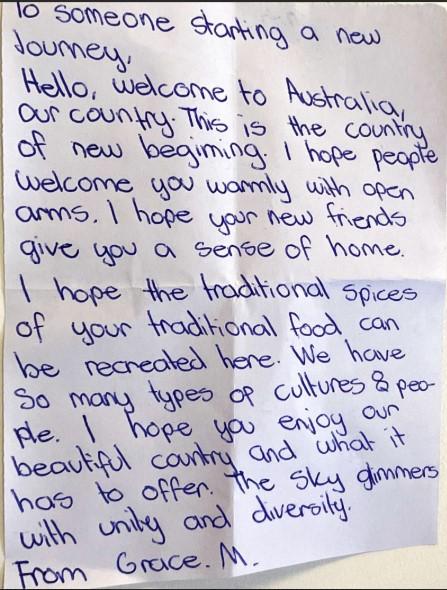 To someone starting a new
Journey,
Hello, welcome to Australia,
our country. This is the country
of new begining. I hope people
welcome you warmly with open
arms. I hope your new friends
give you a sense of home.
I hope the traditional spices
of your traditional food can
be recreated here. We have
So many types of cultures & peo-
ple. I hope you enjoy our
beautiful country and what it
has to offer. The sky glimmers
with unity and diversity.
From Grace. M.